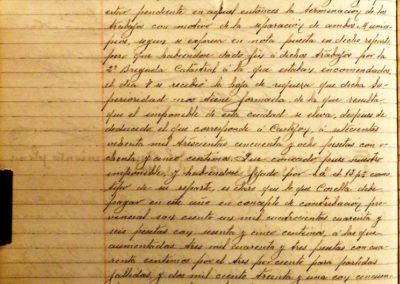 estar pendiente en aquel entonces la terminación de los
trabajos con motivo de la separación de ambos Munici-
pios, segun se expresa en nota puesta en dicho reparto,
pero que habiendose dado fin á dichos trabajos por la
2ª Brigada Catastral á la que estaban encomendados
el dia 7 se recibió la hoja de que dicha Su-
perioridad nos tiene formada de la que resulta
que el imponible de esta ciudad se eleva, despues de
deducido el que corresponde á Castejon, á setecientas
mil trescientas cincuenta y ocho pesetas con o-
chenta y cinco centimos. Que conocido pues nuestro
imponible, y habiendose fijado por la el 13,45 como
tipo de su reparto, es claro que lo que Corella debe
pagar en este año en concepto de contribución pro-
vincial son ciento un mil cuatrocientas cuarenta y
seis pesetas con y cinco centimos, á las que
aumentadas tres mil cuarenta y tres pesetas con cua-
renta centimos por el tres por ciento para partidas
fallidas y dos mil ciento treinta y una con cincuen-